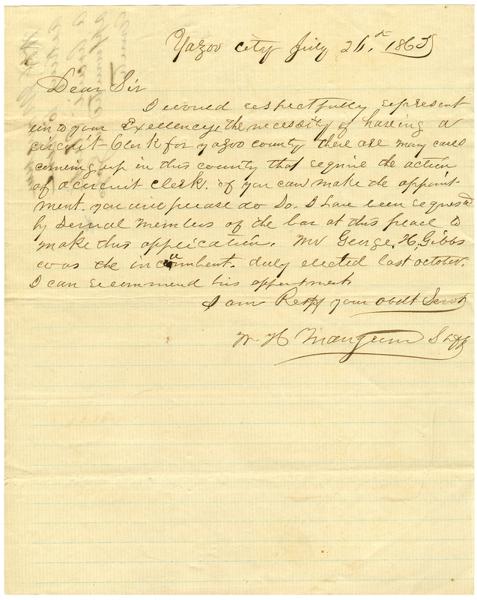 Yazoo city July 26th. 1865
Dear Sir
I would respectfully represent
un to your Exellency, the necessity of having a
circuit Clerk for yazoo county there are may cases
comeing up in this county that require the action
of a circuit clerk. if you can make the appoint-
ment. you will please do So. I have been requestd
by Several members of the bar at this place to
make this application. Mr George, H, Gibbs
was the incumbent. duly elected last october.
I can recommend his appointment
I am Respy your obdt Servt
W. H Mangum Shff